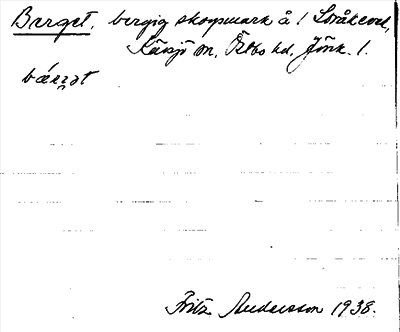 Berget, bergig skogsmark å 1 Stråkeved,
Kävsjö sn, Östbo hd, Jönk. l.
bǽrjət
Fritz Andersson 1938.